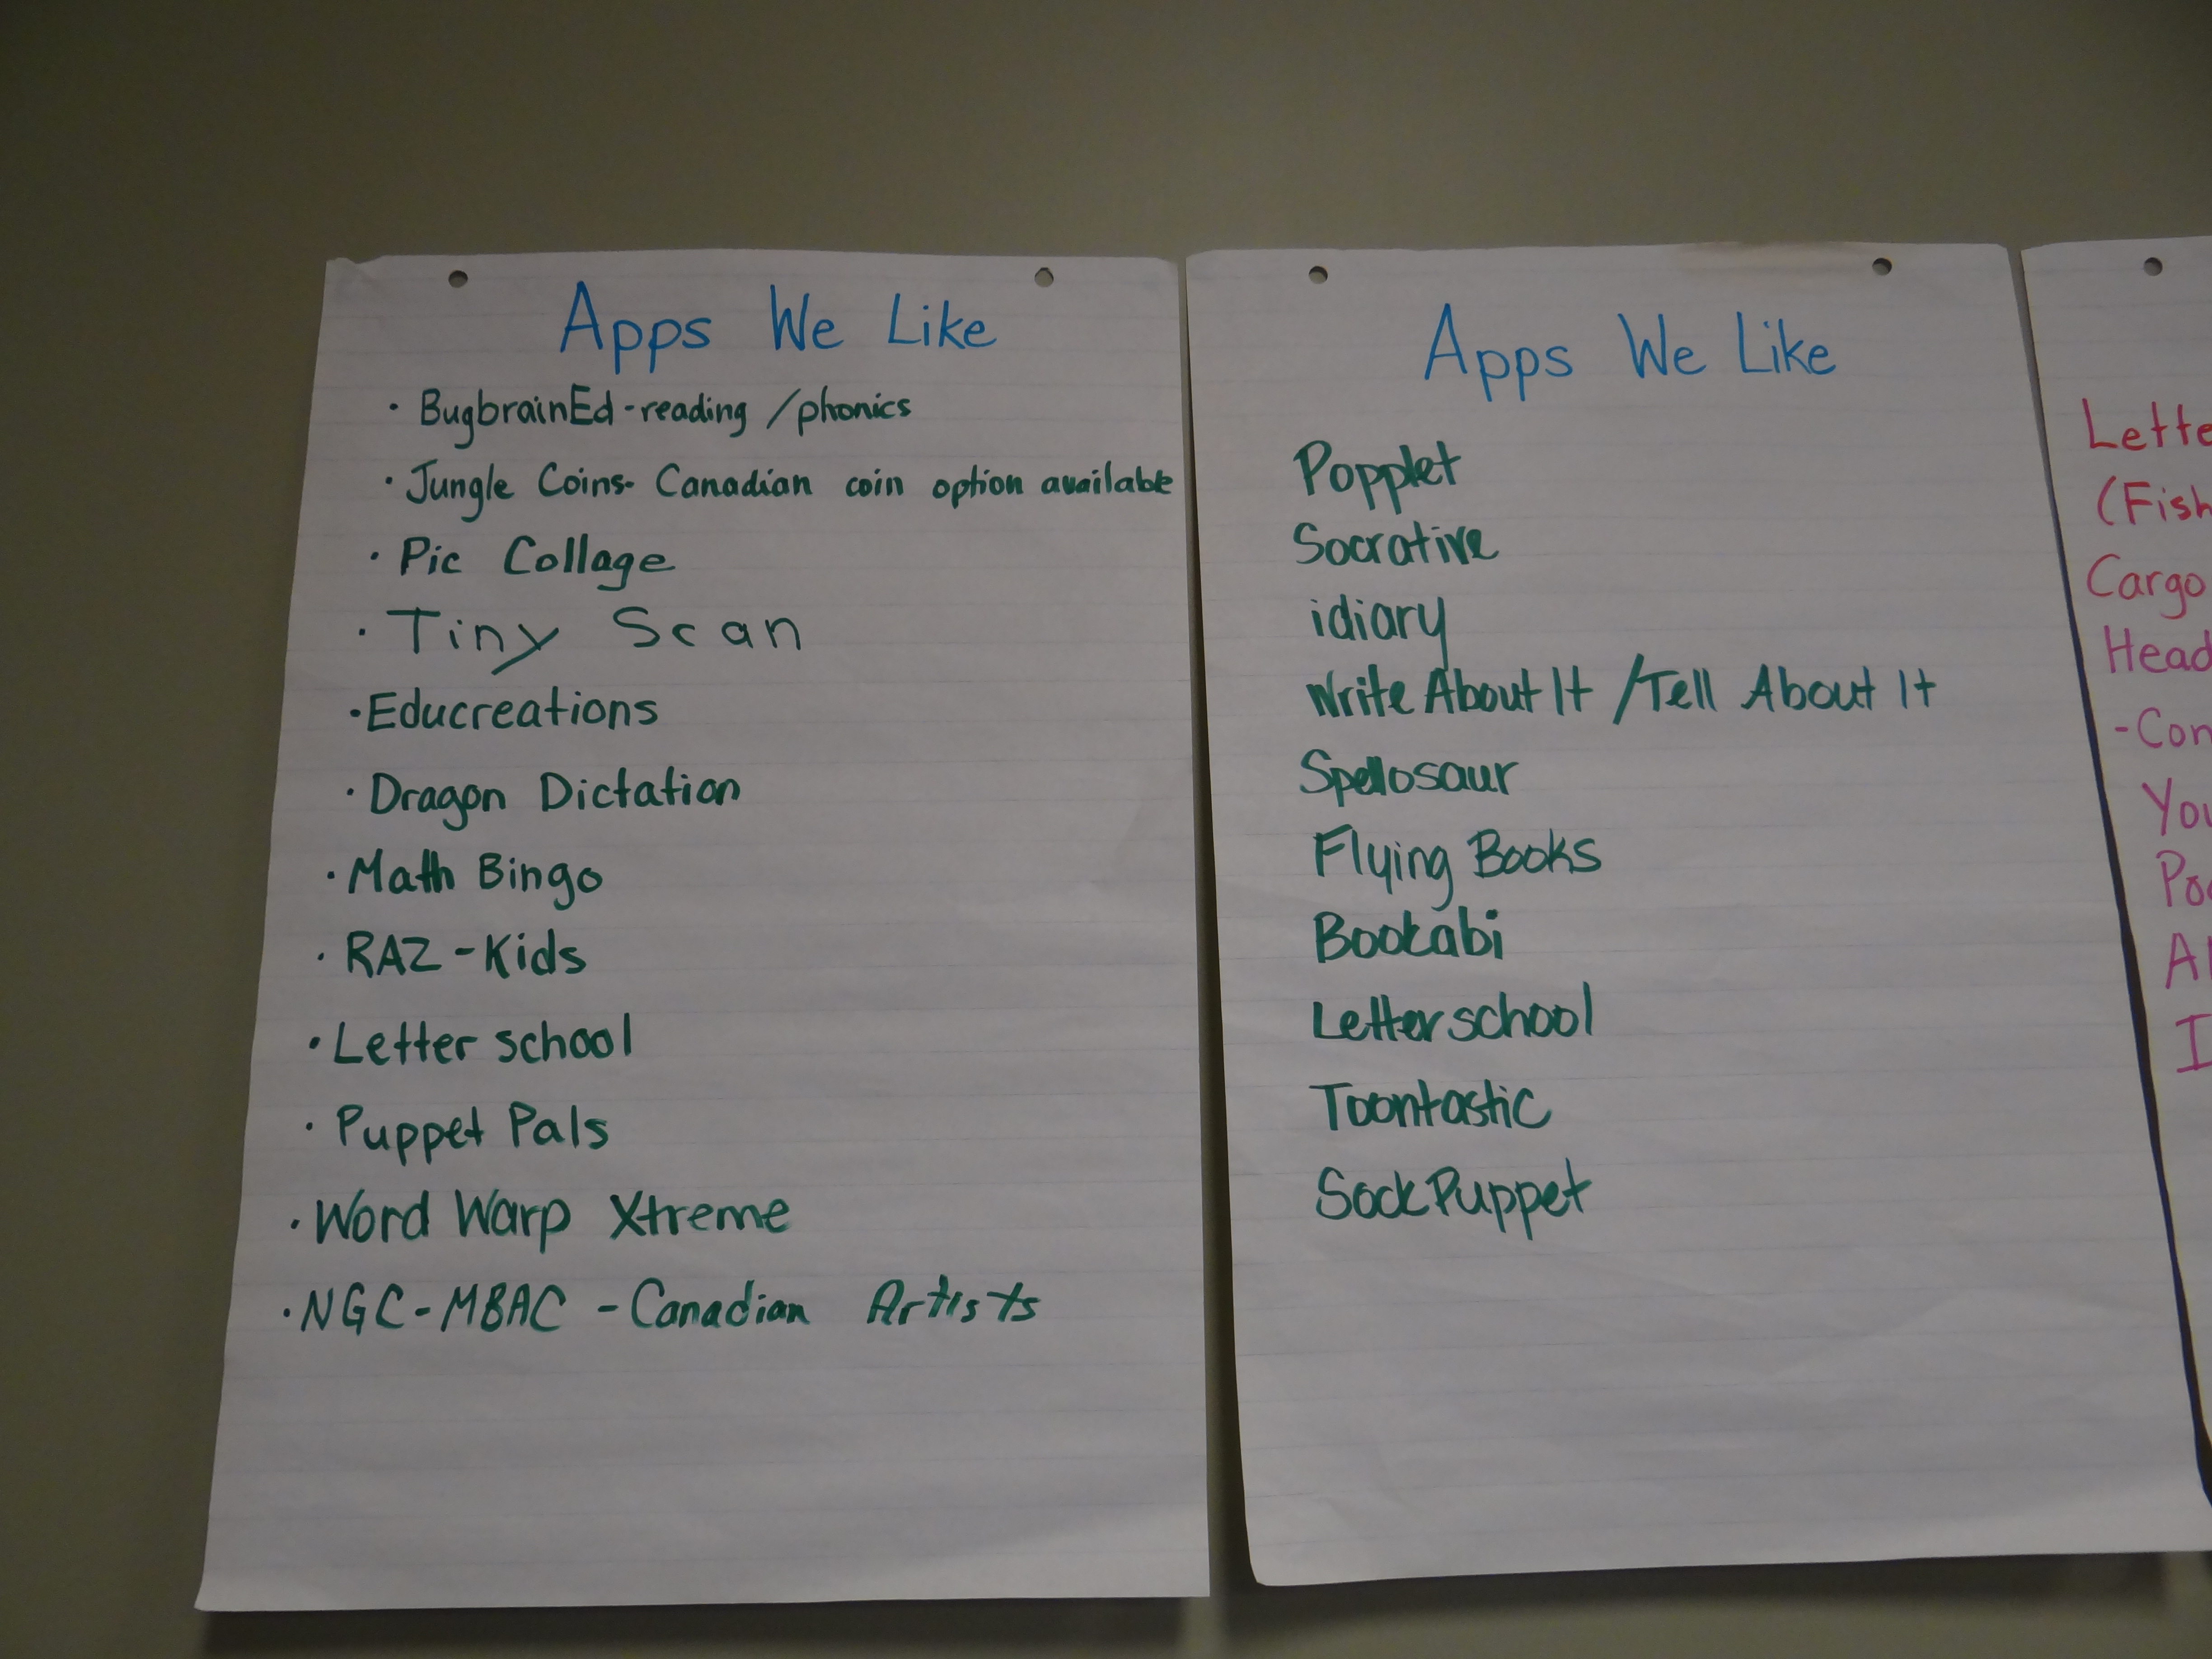 Apps We Like
· BugbrainEd - reading / phonics
· Jungle Coins - Canadian coin option available
· Pic Collage
· Tiny Scan
· Educreations
· Dragon Dictation
· Math Bingo
· RAZ - Kids
· Letter school
· Puppet Pals
· Word Warp Xtreme
· NGC - MBAC - Canadian Artists
Apps We Like
Popplet
Socrative
idiary
Write About It / Tell About It
Spellosaur
Flying Books
Bookabi
Letterschool
Toontastic
Sock Puppet
Lette
(Fish
Cargo
Head
- Con
You
Al
I